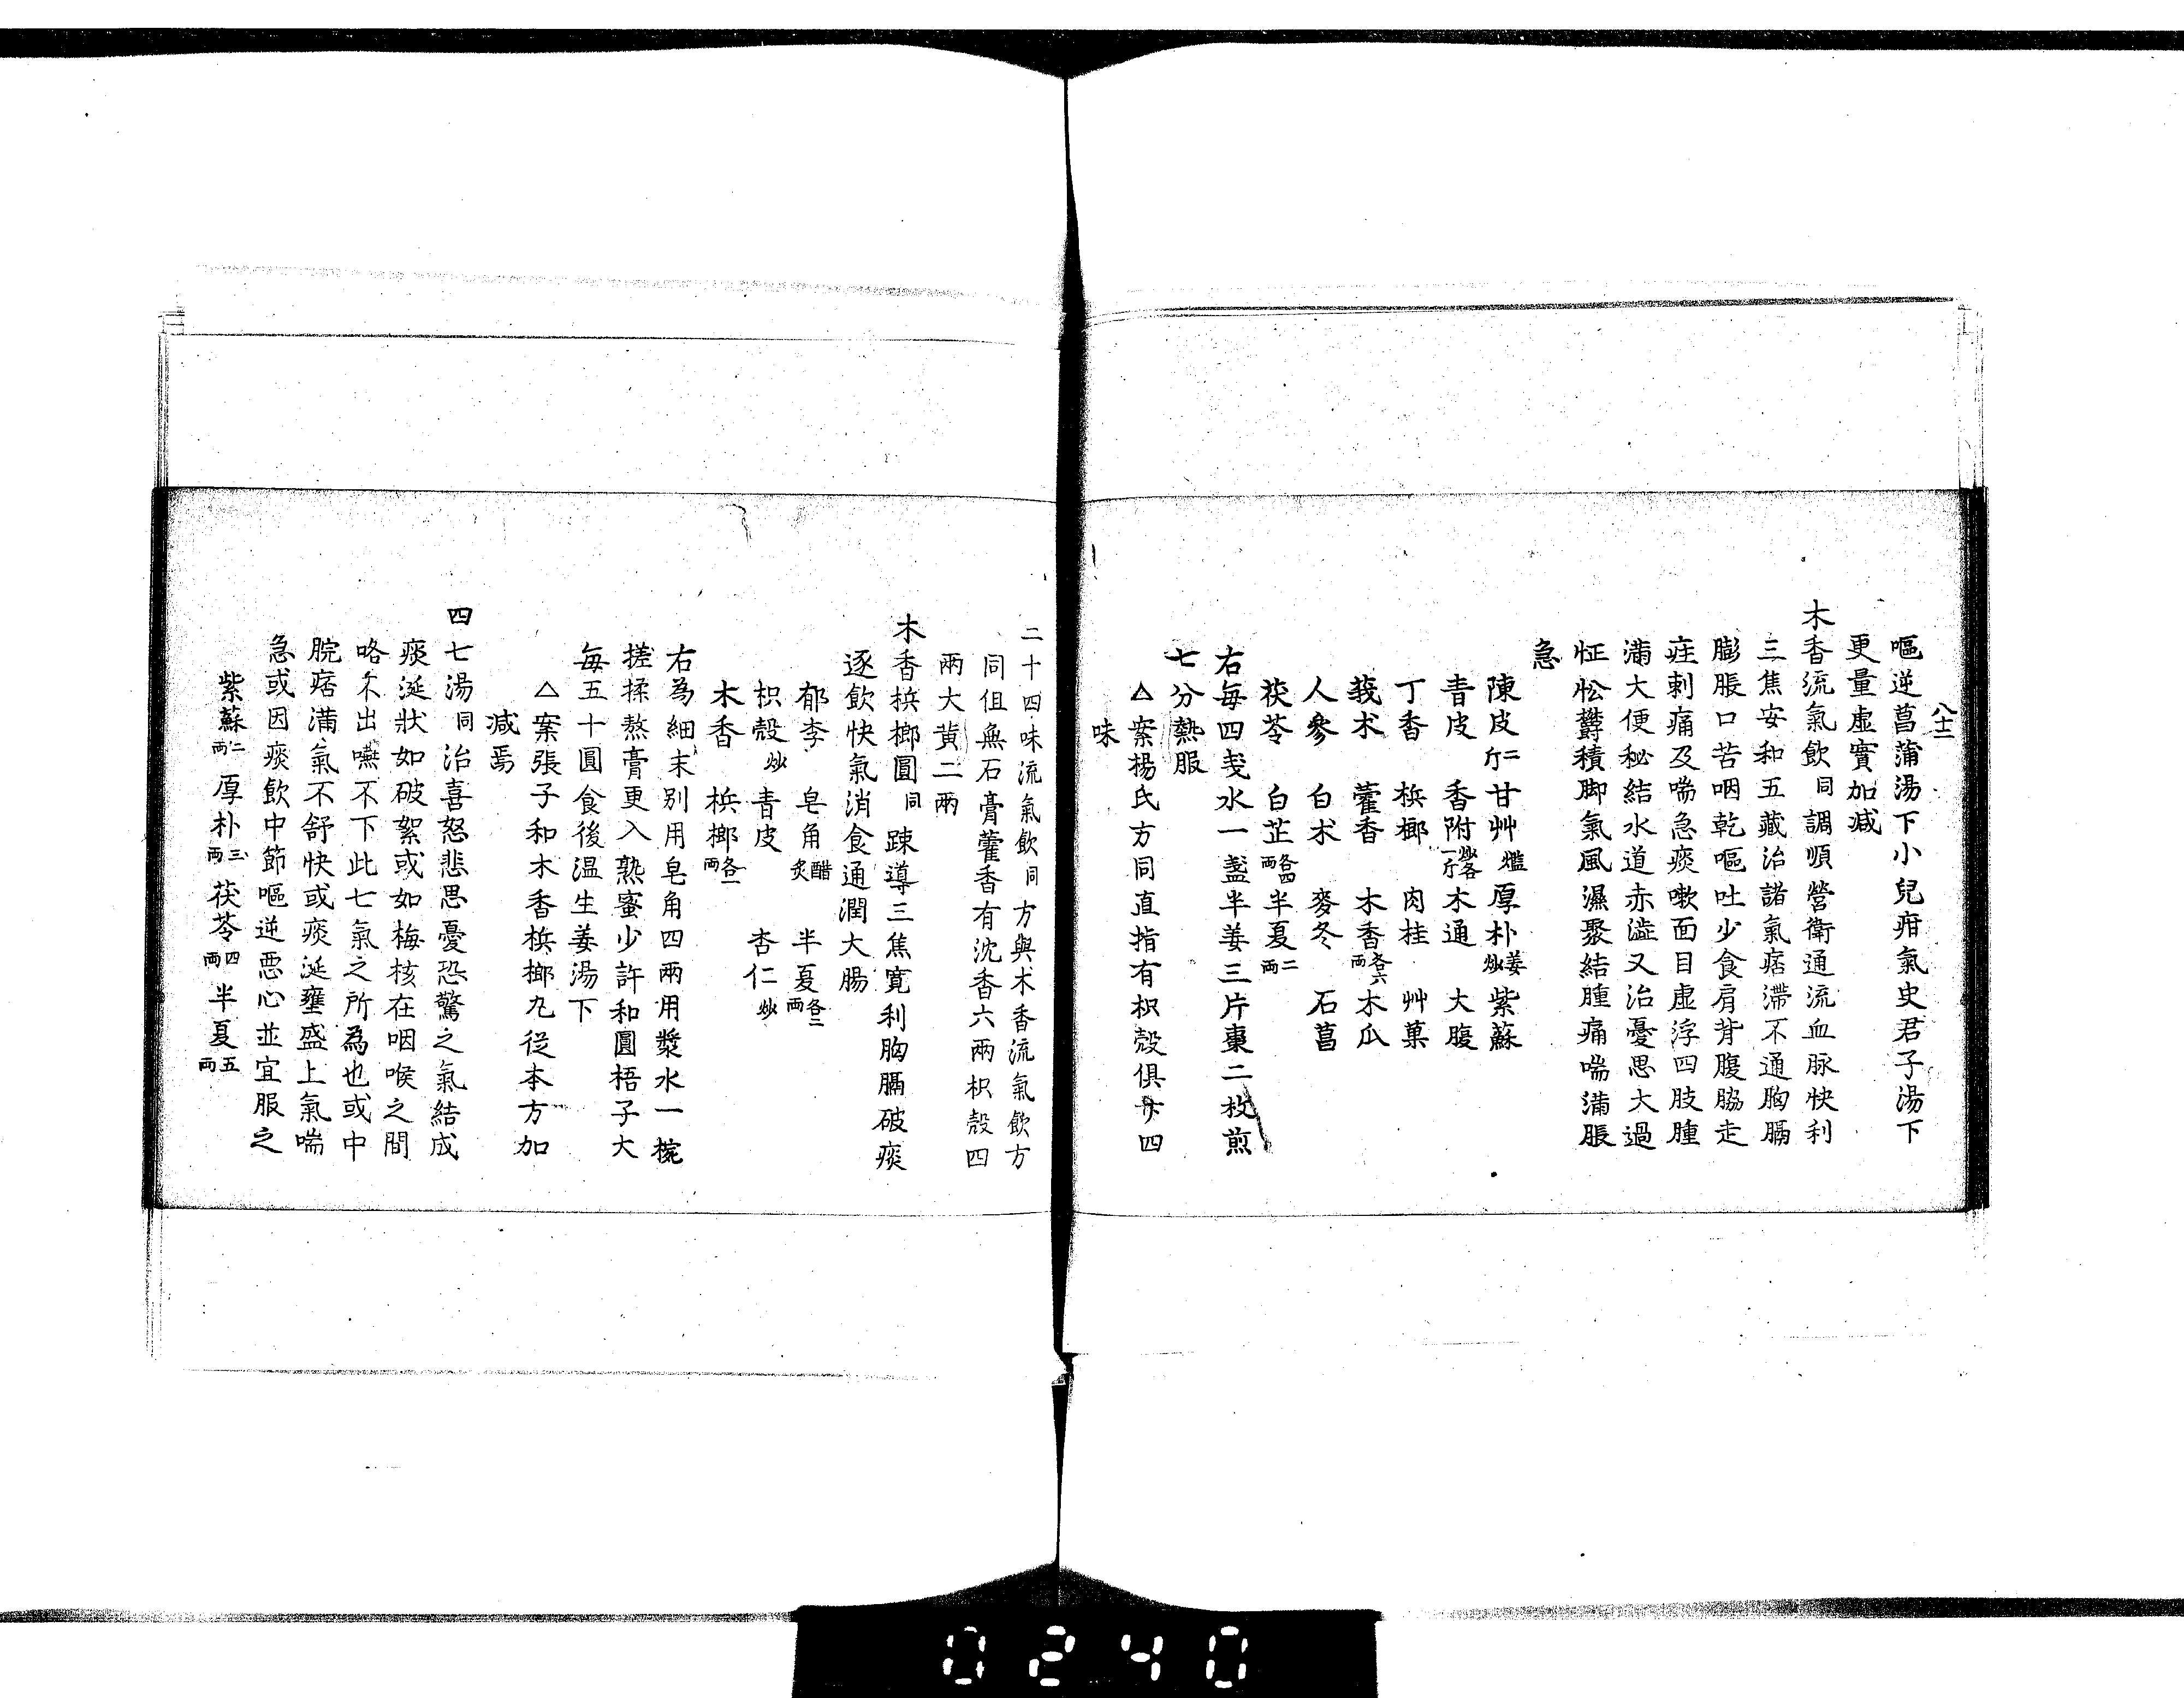 八十二
嘔逆菖蒲湯下小兒疳氣史君子湯下
更量虛實加减
木香流氣飲同調順營衛通流血脉快利
三焦安和五藏治諸氣痞滯不通胸膈
膨脹口苦咽乾嘔吐少食肩背腹脇走
疰刺痛及喘急痰嗽面目虛浮四肢腫
滿大便秘結水道赤澁又治憂思大過
怔忪欝積脚氣風濕聚結腫痛喘滿脹
急
陳皮二斤 甘艸爁 厚朴姜炒 紫蘇
青皮 香附炒各一斤 木通 大腹
丁香 梹榔 肉桂 艸菓
莪朮 藿香 木香各六両 木瓜
人參 白朮 麥冬 石菖
茯苓 白芷各四両 半夏二両
右每四戔水一盞半姜三片棗二枚煎
七分熱服
△案楊氏方同直指有枳殼俱廿四
味
二十四味流氣飲同方與木香流氣飲方
同但無石膏藿香有沈香六兩枳殼四
兩大黄二兩
木香梹榔圓同 踈導三焦寬利胸膈破痰
逐飲快氣消食通潤大腸
郁李 皂角醋炙 半夏各二両
枳殼炒 青皮 杏仁炒
木香 梹榔各一両
右為細末別用皂角四兩用漿水一椀
搓揉熬膏更入熟蜜少許和圓梧子大
每五十圓食後温生姜湯下
△案張子和木香梹榔丸從本方加
减焉
四七湯同治喜怒悲思憂恐驚之氣結成
痰涎狀如破絮或如梅核在咽喉之間
咯不出嚥不下此七氣之所為也或中
脘痞滿氣不舒快或痰涎壅盛上氣喘
急或因痰飲中節嘔逆惡心並宜服之
紫蘇二両 厚朴三両 茯苓四両 半夏五両
0240